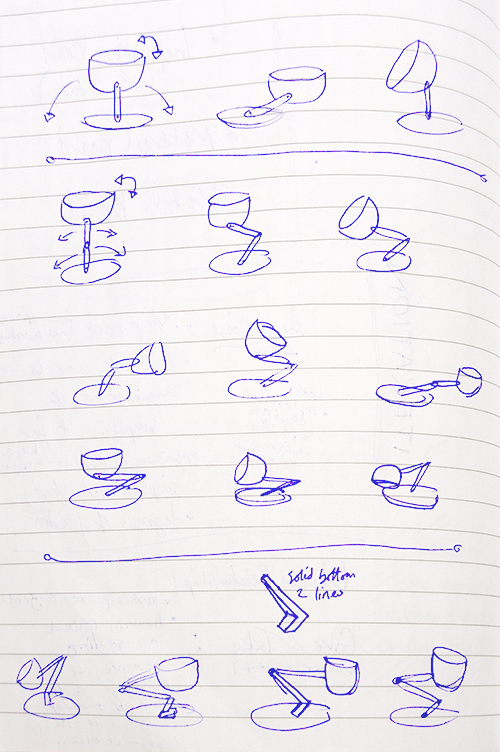 solid bottom
2 lines